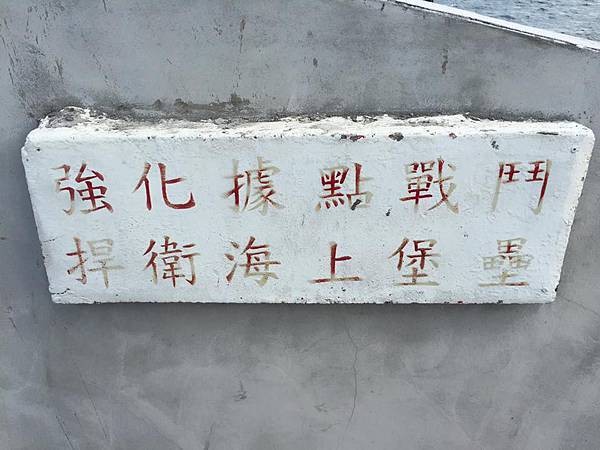 強化據點戰鬥
捍衛海上堡壘